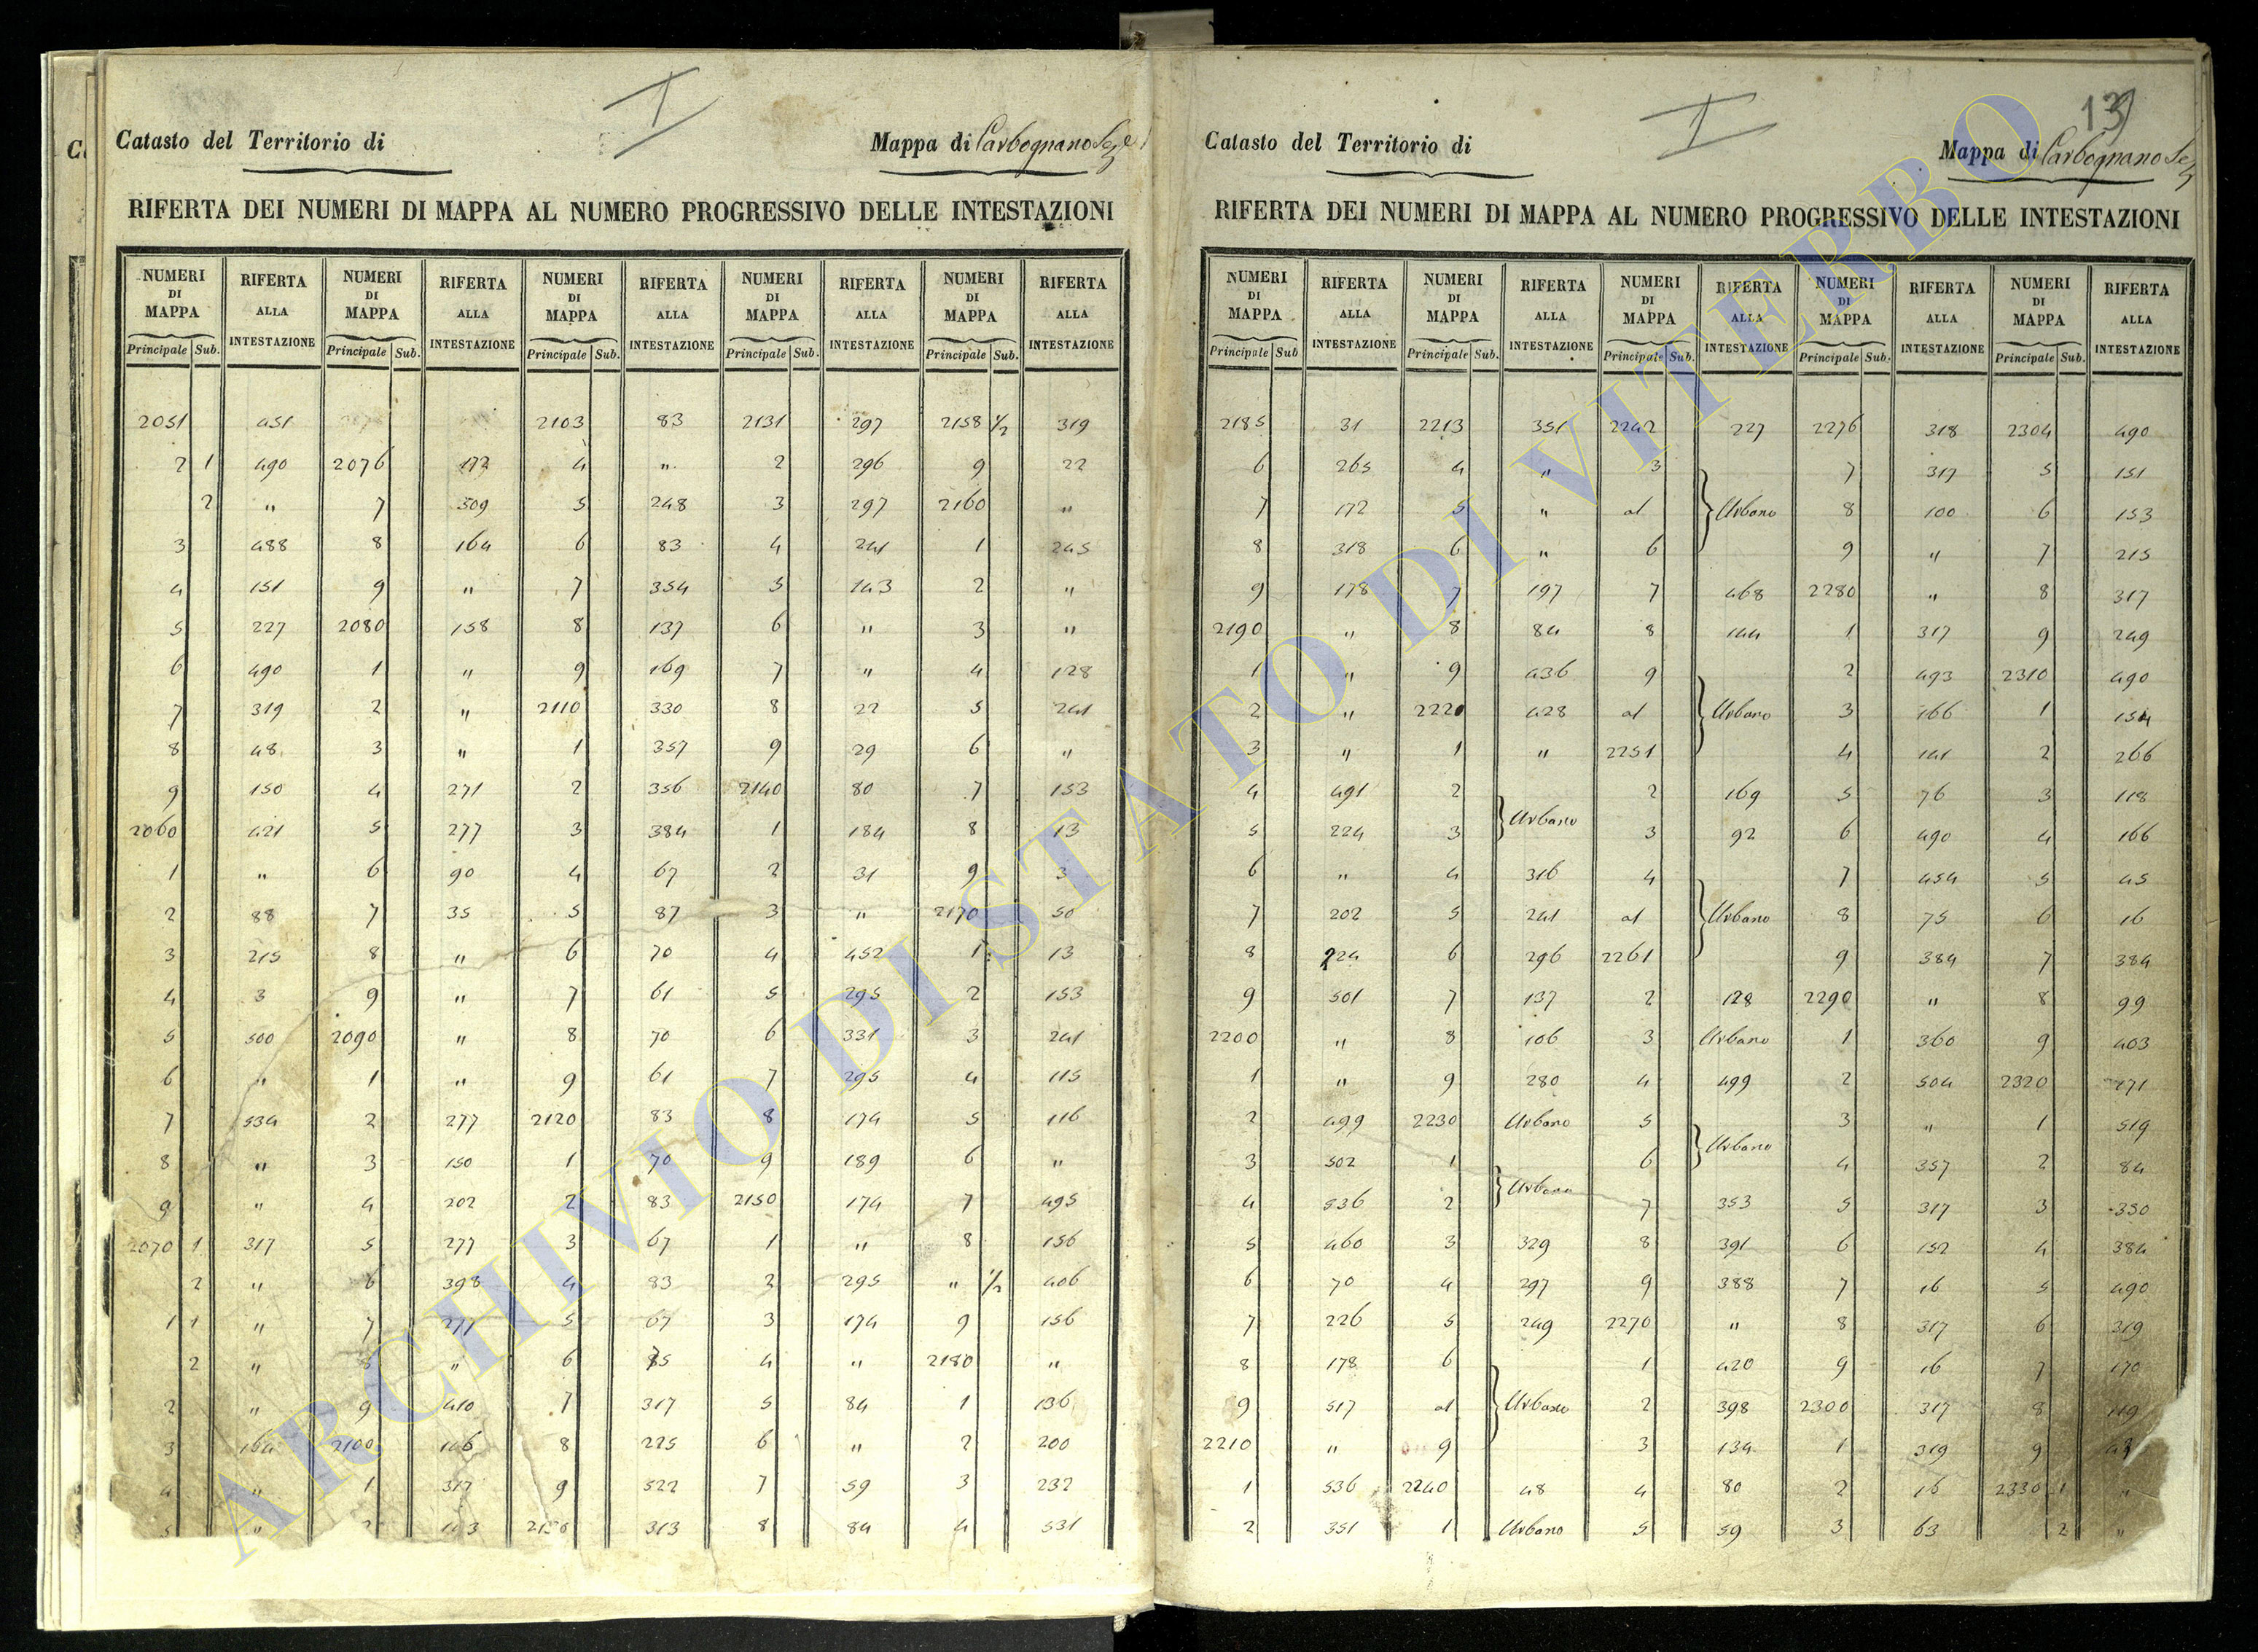 I
Catasto del Territorio di
Mappa di Carbognano Sez
RIFERTA DEI NUMERI DI MAPPA AL NUMERO PROGRESSIVO DELLE INTESTAZIONI
NUMERI DI MAPPA RIFERTA ALLA INTESTAZIONE NUMERI DI MAPPA RIFERTA ALLA INTESTAZIONE NUMERI DI MAPPA RIFERTA ALLA INTESTAZIONE NUMERI DI MAPPA RIFERTA ALLA INTESTAZIONE NUMERI DI MAPPA RIFERTA ALLA INTESTAZIONE
Principale Sub. Principale Sub. Principale Sub. Principale Sub. Principale Sub.
2051 451 2103 83 2131 297 2158 1/2 319
2 1 490 2076 172 4 " 2 296 9 22
2 " 7 509 5 248 3 297 2160 "
3 488 8 164 6 83 4 241 1 245
4 151 9 " 7 354 5 143 2 "
5 227 2080 158 8 137 6 " 3 "
6 490 1 " 9 169 7 " 4 128
7 319 2 " 2110 330 8 22 5 241
8 48 3 " 1 357 9 29 6 "
9 150 4 271 2 356 2140 80 7 153
2060 421 5 277 3 384 1 184 8 13
1 " 6 90 4 67 2 31 9 3
2 88 7 35 5 87 3 " 2170 50
3 215 8 " 6 70 4 452 1 13
4 3 9 " 7 61 5 295 2 153
5 500 2090 " 8 70 6 331 3 241
6 " 1 " 9 61 7 295 4 115
7 534 2 277 2120 83 8 174 5 116
8 " 3 150 1 70 9 189 6 "
9 " 4 202 2 83 2150 174 7 495
2070 1 317 5 277 3 67 1 " 8 156
2 " 6 398 4 83 2 295 " 1/2 406
1 1 " 7 277 5 67 3 174 9 156
2 " 8 " 6 85 4 " 2180 "
2 " 9 410 7 317 5 84 1 136
3 164 2100 106 8 225 6 " 2 200
4 " 1 317 9 522 7 59 3 232
5 " 2 2130 313 8 84 4 531
I
13
Catasto del Territorio di
Mappa di Carbognano Sez
RIFERTA DEI NUMERI DI MAPPA AL NUMERO PROGRESSIVO DELLE INTESTAZIONI
NUMERI DI MAPPA RIFERTA ALLA INTESTAZIONE NUMERI DI MAPPA RIFERTA ALLA INTESTAZIONE NUMERI DI MAPPA RIFERTA ALLA INTESTAZIONE NUMERI DI MAPPA RIFERTA ALLA INTESTAZIONE NUMERI DI MAPPA RIFERTA ALLA INTESTAZIONE
Principale Sub Principale Sub. Principale Sub. Principale Sub. Principale Sub.
2185 31 2213 351 2242 227 2276 318 2304 490
6 265 4 " 3 7 317 5 151
7 172 5 " al Urbano 8 100 6 153
8 318 6 " 6 9 " 7 215
9 178 7 197 7 468 2280 " 8 317
2190 " 8 84 8 144 1 317 9 249
1 " 9 436 9 2 493 2310 490
2 " 2220 428 al Urbano 3 166 1 154
3 " 1 " 2251 4 141 2 266
4 491 2 Urbano 2 169 5 76 3 118
5 224 3 3 92 6 490 4 166
6 " 4 316 4 7 454 5 45
7 202 5 241 al Urbano 8 75 6 16
8 224 6 296 2261 9 384 7 384
9 501 7 137 2 128 2290 " 8 99
2200 " 8 106 3 Urbano 1 360 9 403
1 " 9 280 4 499 2 504 2320 271
2 499 2230 Urbano 5 Urbano 3 " 1 519
3 502 1 Urbano 6 4 357 2 84
4 536 2 7 353 5 317 3 330
5 460 3 329 8 391 6 152 4 384
6 70 4 297 9 388 7 16 5 490
7 226 5 249 2270 " 8 317 6 319
8 178 6 1 420 9 16 7 170
9 517 al Urbano 2 398 2300 317 8 119
2210 " 9 3 134 1 319 9
1 536 2240 48 4 80 2 16 2330 1 "
2 351 1 Urbano 5 59 3 63 2 "
ARCHIVIO DI STATO DI VITERBO